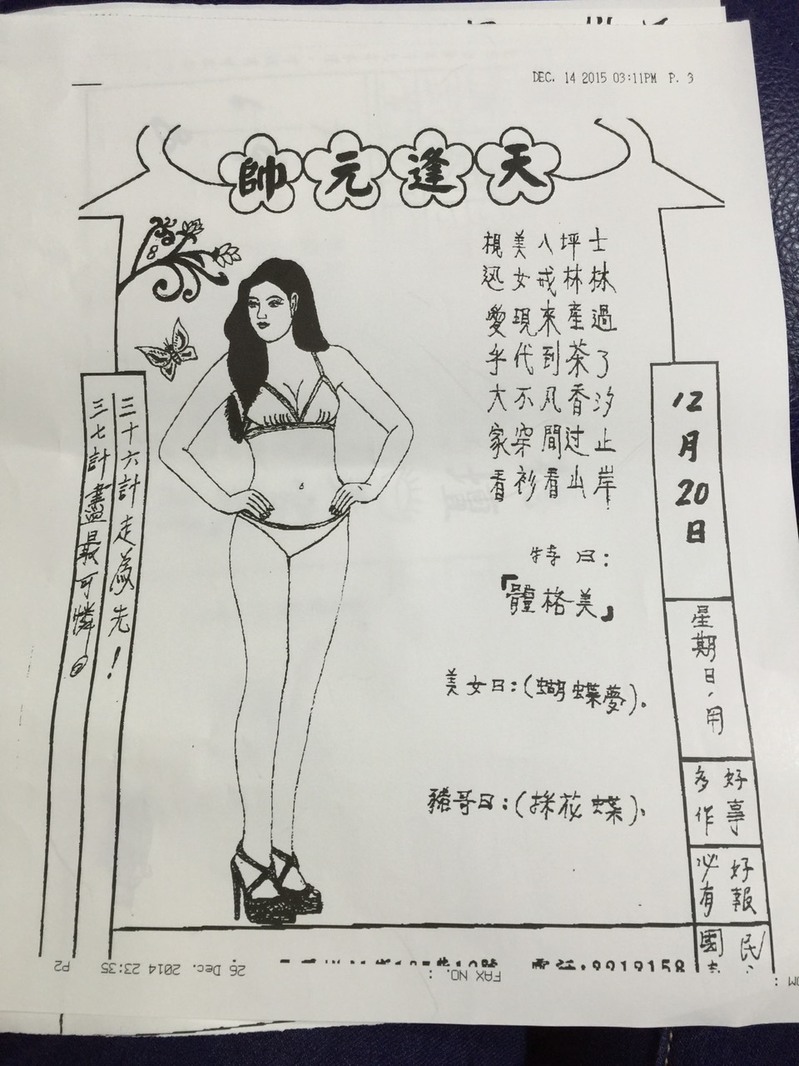 DEC. 14 2015 03:11PM P. 3
天逢元帥
12月20日
星期日,用
好事
多作
好報
必有
民
國
士林過了汐止岸
坪林產茶香过山
八戒來到凡間看
美女現代不穿衫
視迅愛乎大家看
特曰:
「體格美」
美女曰:(蝴蝶夢).
豬哥曰:(採花蝶).
8
三十六計走為先!
三七計盡最可憐。
電話:9919158
FAX NO. :
26 Dec. 2014 23:35
P2